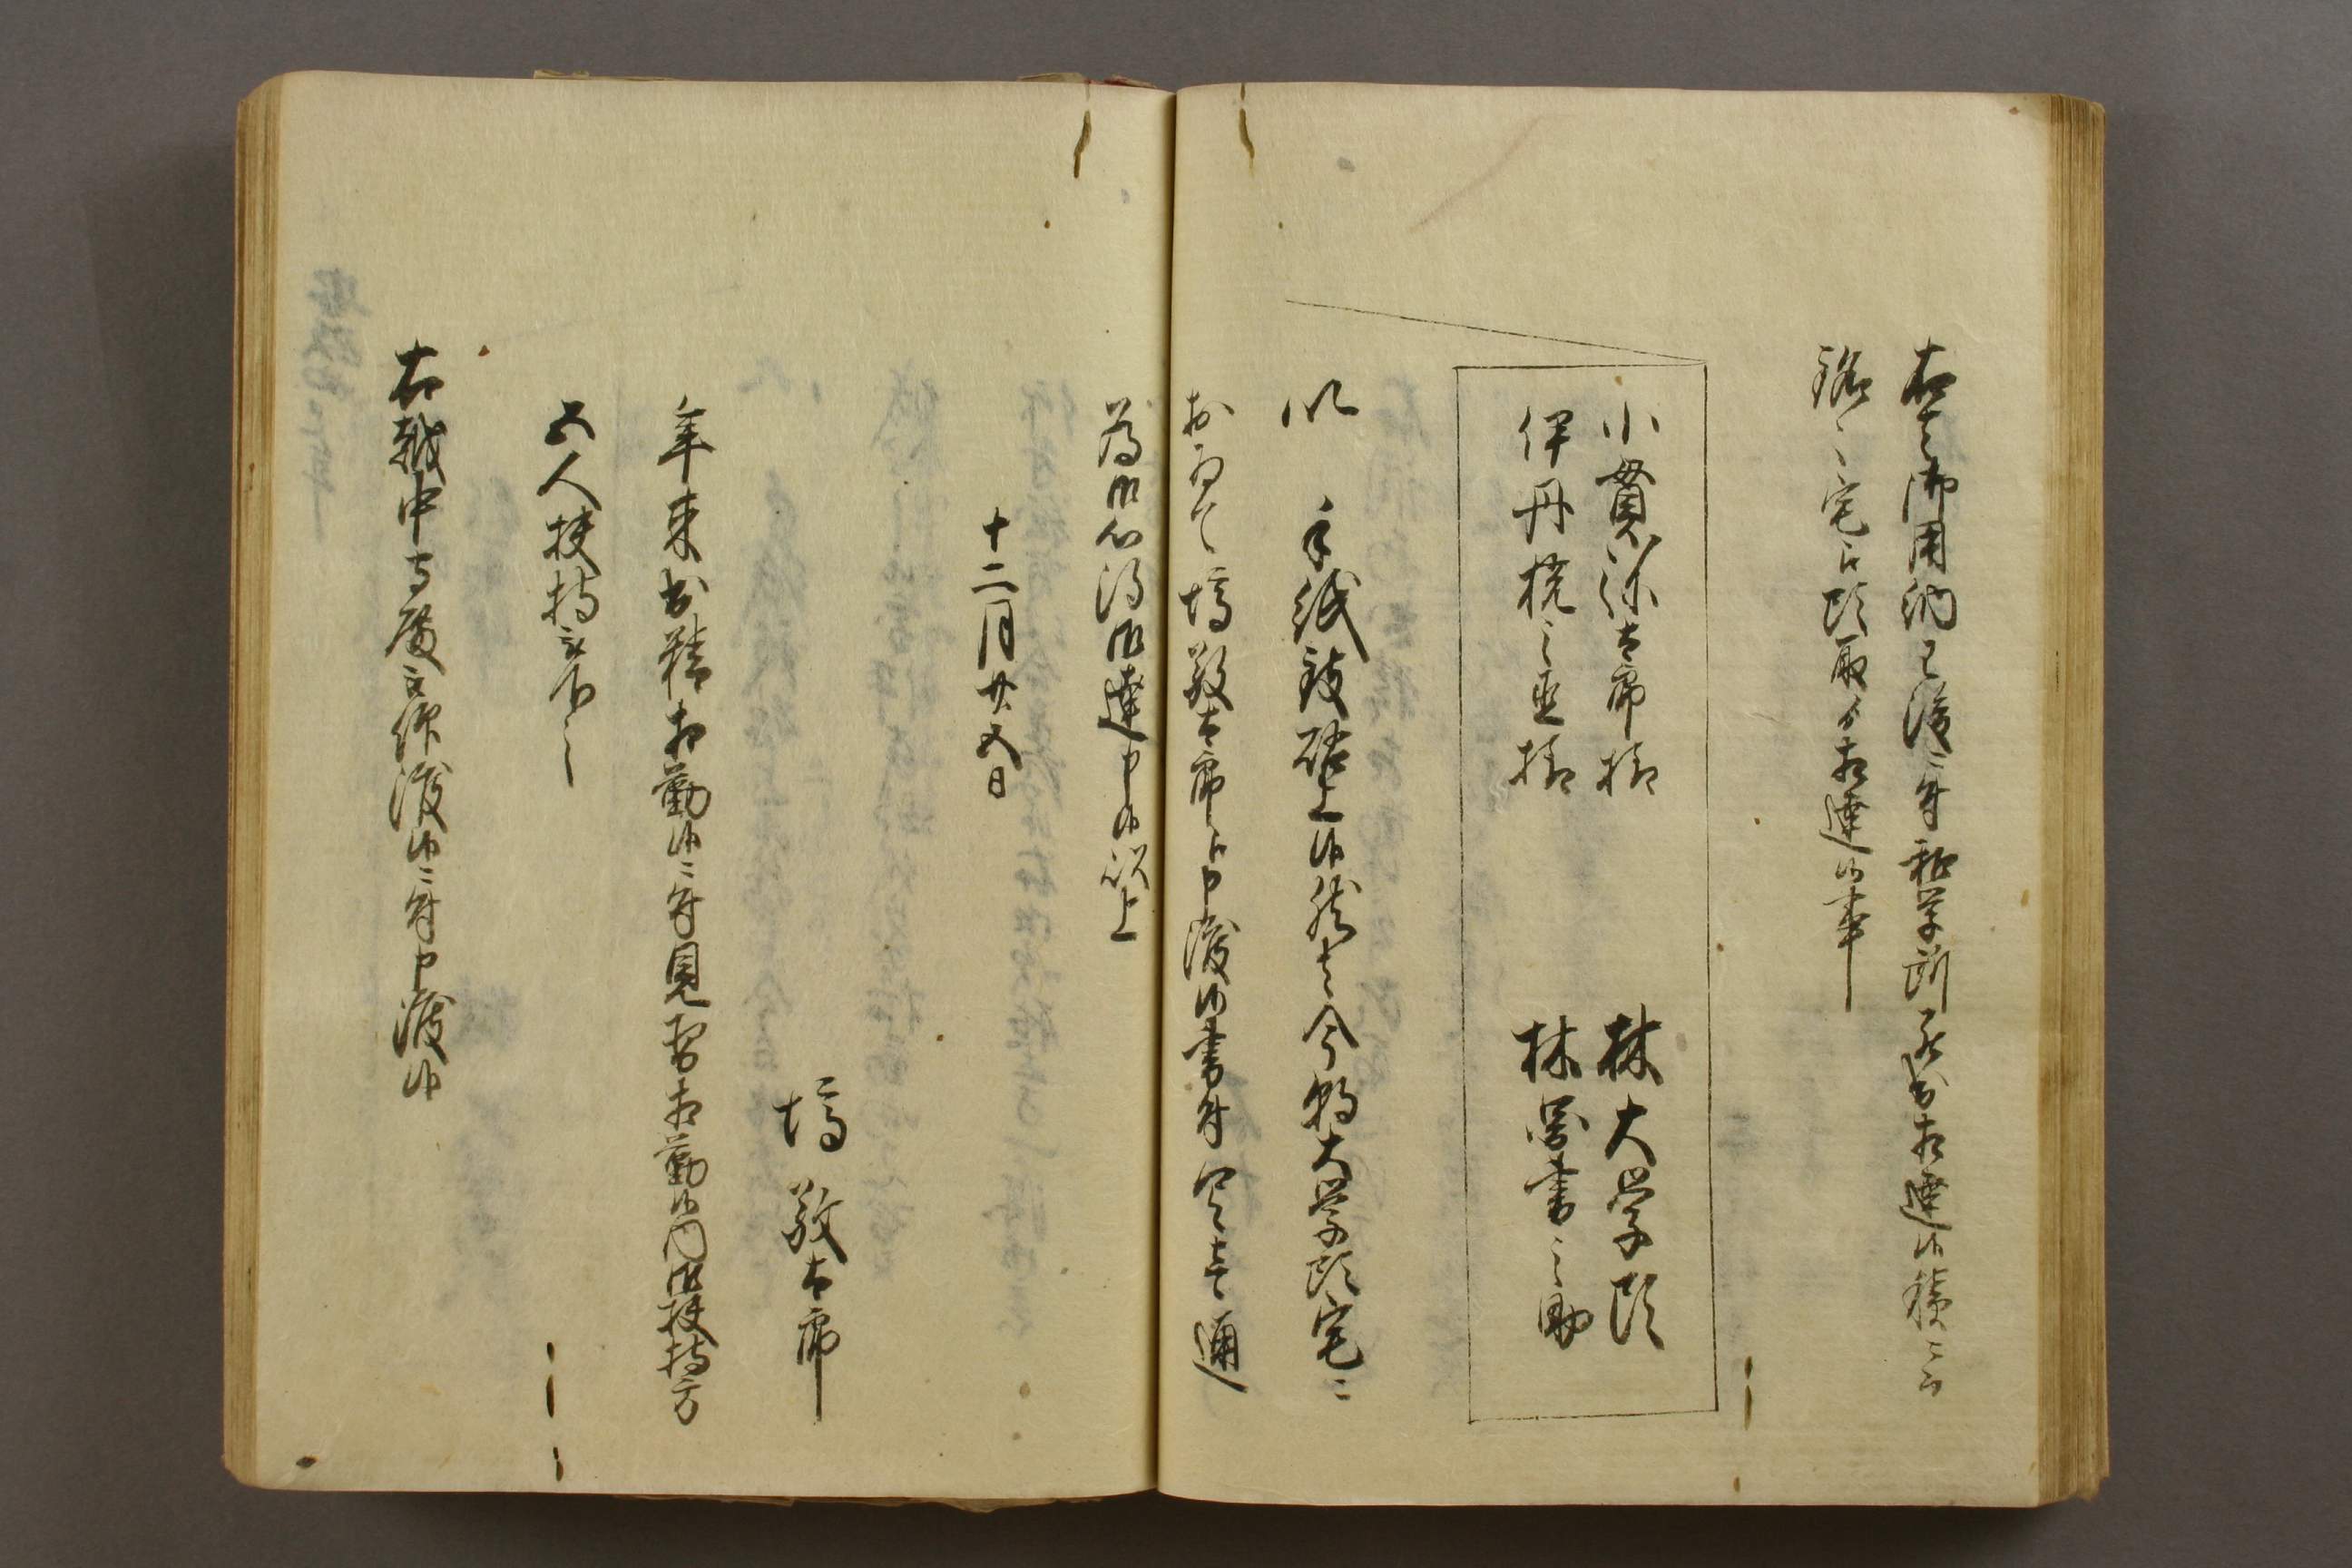 右之御用納已後ニ付和学所 相達候積ニ而
銘々宅江頭取ゟ相達候事
小貫弥太郎様
伊丹 之丞様
林大学頭
林図書之助
以手紙致啓上候然者今朝大学頭宅ニ
おゐて塙敬太郎江申渡候書付写壱通
為御心得御達申候以上
十二月廿五日
塙敬太郎
年来出精相勤候ニ付見習相勤候内御扶持方
五人扶持被下之
右越中守殿被仰渡候ニ付申渡候